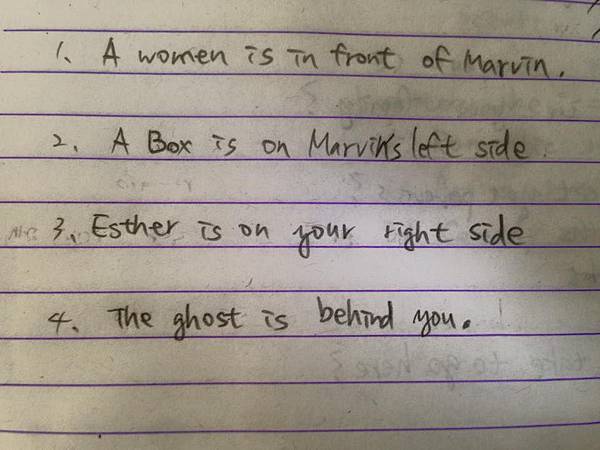 1. A women is in front of Marvin.
2. A Box is on Marvin's left side.
3. Esther is on your right side
4. The ghost is behind you.